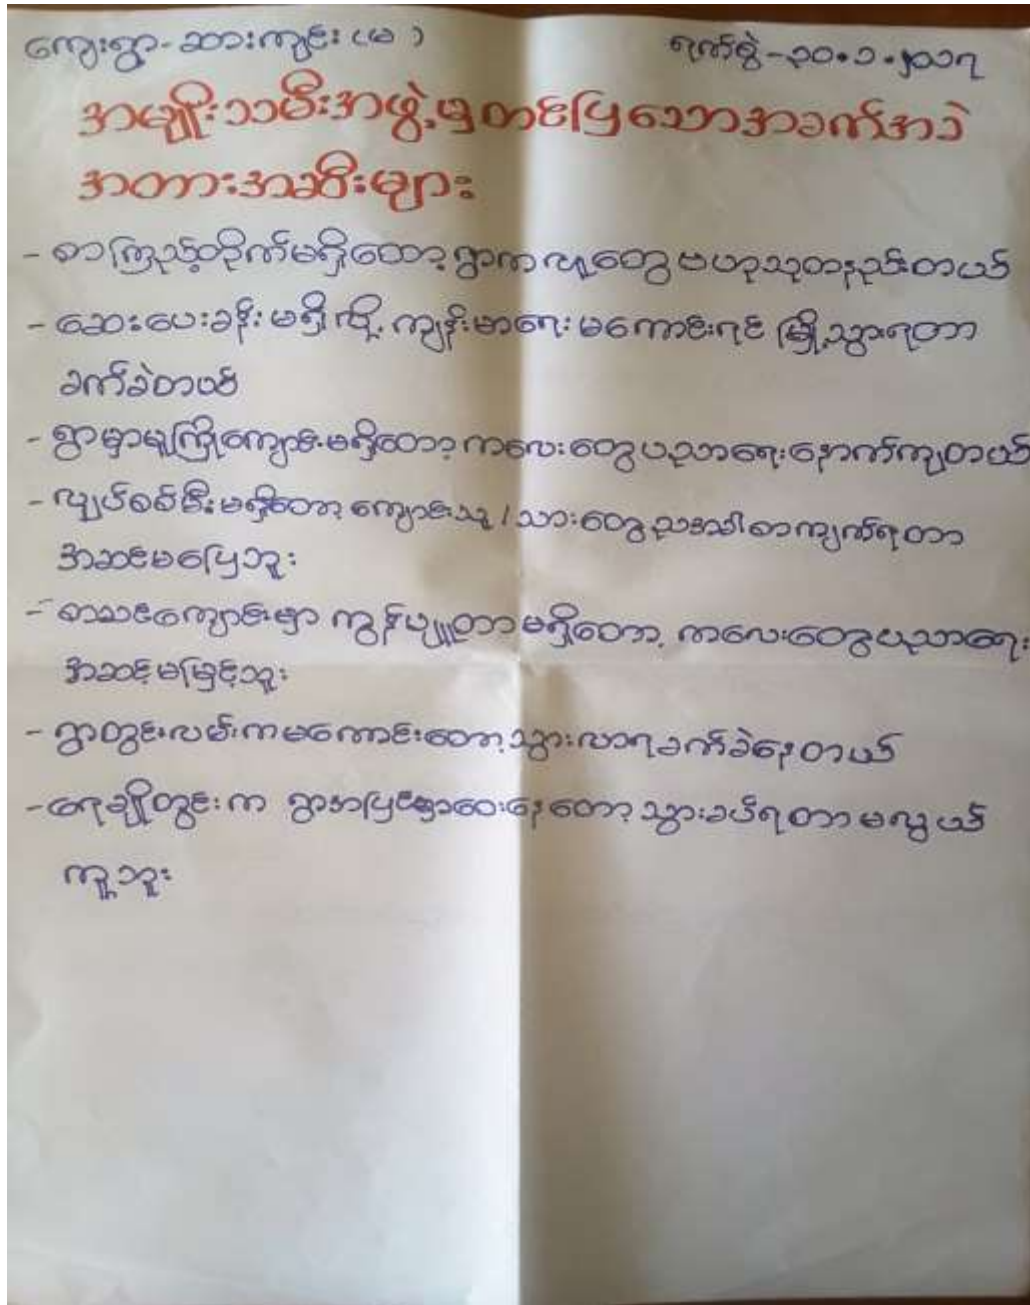 ကျေးရွာ-ဆားကျင်း(မ) ရက်စွဲ-၃၀.၁.၂၀၁၇
အမျိုးသမီးအဖွဲ့မှတင်ပြသောအခက်အခဲ
အတားအဆီးများ
- စာကြည့်တိုက်မရှိတော့ရွာကလူတွေဗဟုသုတနည်းတယ်
- ဆေးပေးခန်းမရှိလို့ ကျန်းမာရေးမကောင်းရင် မြို့သွားရတာ
ခက်ခဲတယ်
- ရွာမှာမူကြိုကျောင်းမရှိတော့ ကလေးတွေပညာရေးနောက်ကျတယ်
- လျှပ်စစ်မီးမရှိတော့ ကျောင်းသူ/သားတွေညအခါစာကျက်ရတာ
အဆင်မပြေဘူး
- စာသင်ကျောင်းမှာ ကွန်ပျူတာမရှိတော့ ကလေးတွေပညာရေး
အဆင့်မမြင့်ဘူး
- ရွာတွင်းလမ်းကမကောင်းတော့သွားလာရခက်ခဲနေတယ်
- ရေချိုတွင်းက ရွာအပြင်မှာဝေးနေတော့ သွားခပ်ရတာမလွယ်
ကူဘူး